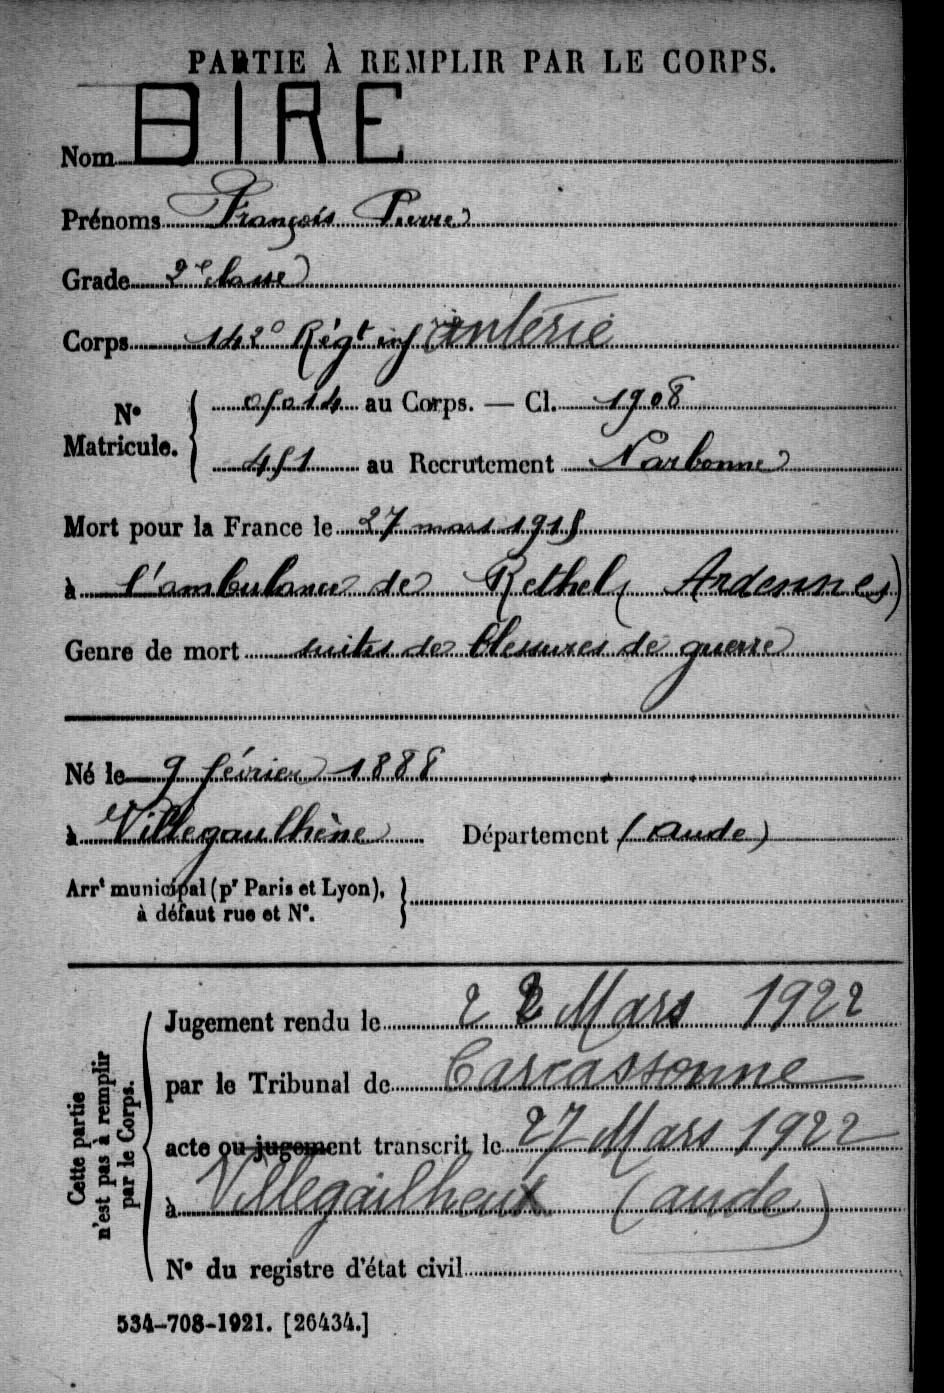 PARTIE À REMPLIR PAR LE CORPS.
Nom BIRE
Prénoms François Pierre
Grade 2e classe
Corps 142e Régt infanterie
N° Matricule. 05014 au Corps. — Cl. 1908
451 au Recrutement Narbonne
Mort pour la France le 27 mars 1915
à l'ambulance de Rethel (Ardennes)
Genre de mort suites de blessures de guerre
Né le 9 février 1888
à Villegaulhène Département (Aude)
Arrt municipal (pr Paris et Lyon),
à défaut rue et N°.
Cette partie
n'est pas à remplir
par le Corps.
Jugement rendu le 22 Mars 1922
par le Tribunal de Carcassonne
acte ou jugement transcrit le 27 Mars 1922
à (aude)
N° du registre d'état civil
534-708-1921. [26434.]